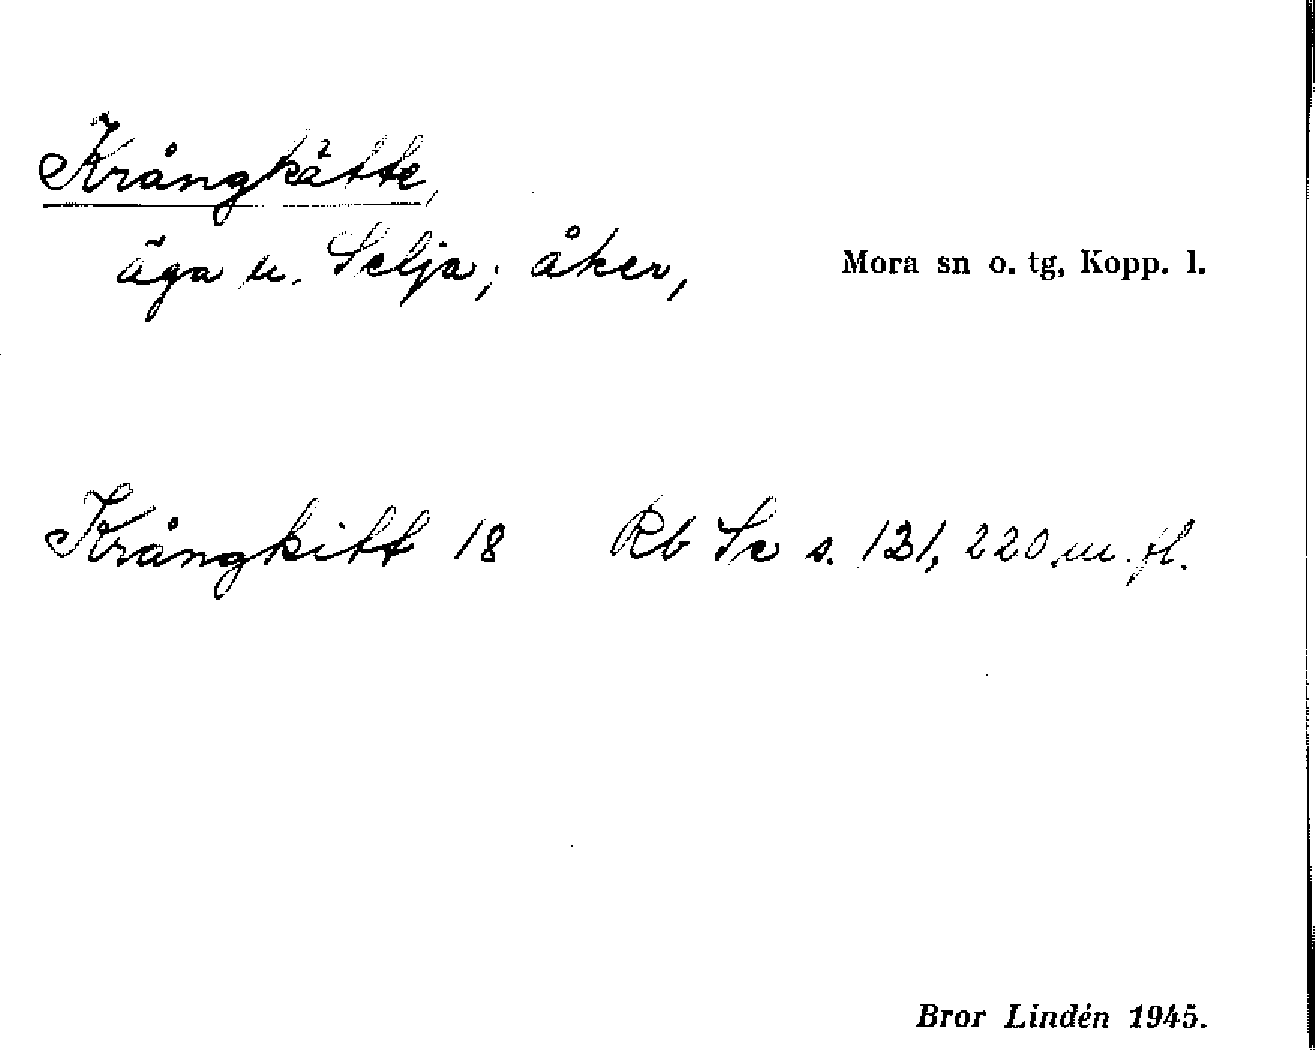 Krångkätte,
äga u. Selja; åker,
Mora sn o. tg, Kopp. l.
Krångkitt 18 Rb Se s. 131, 220 m. fl.
Bror Lindén 1945.